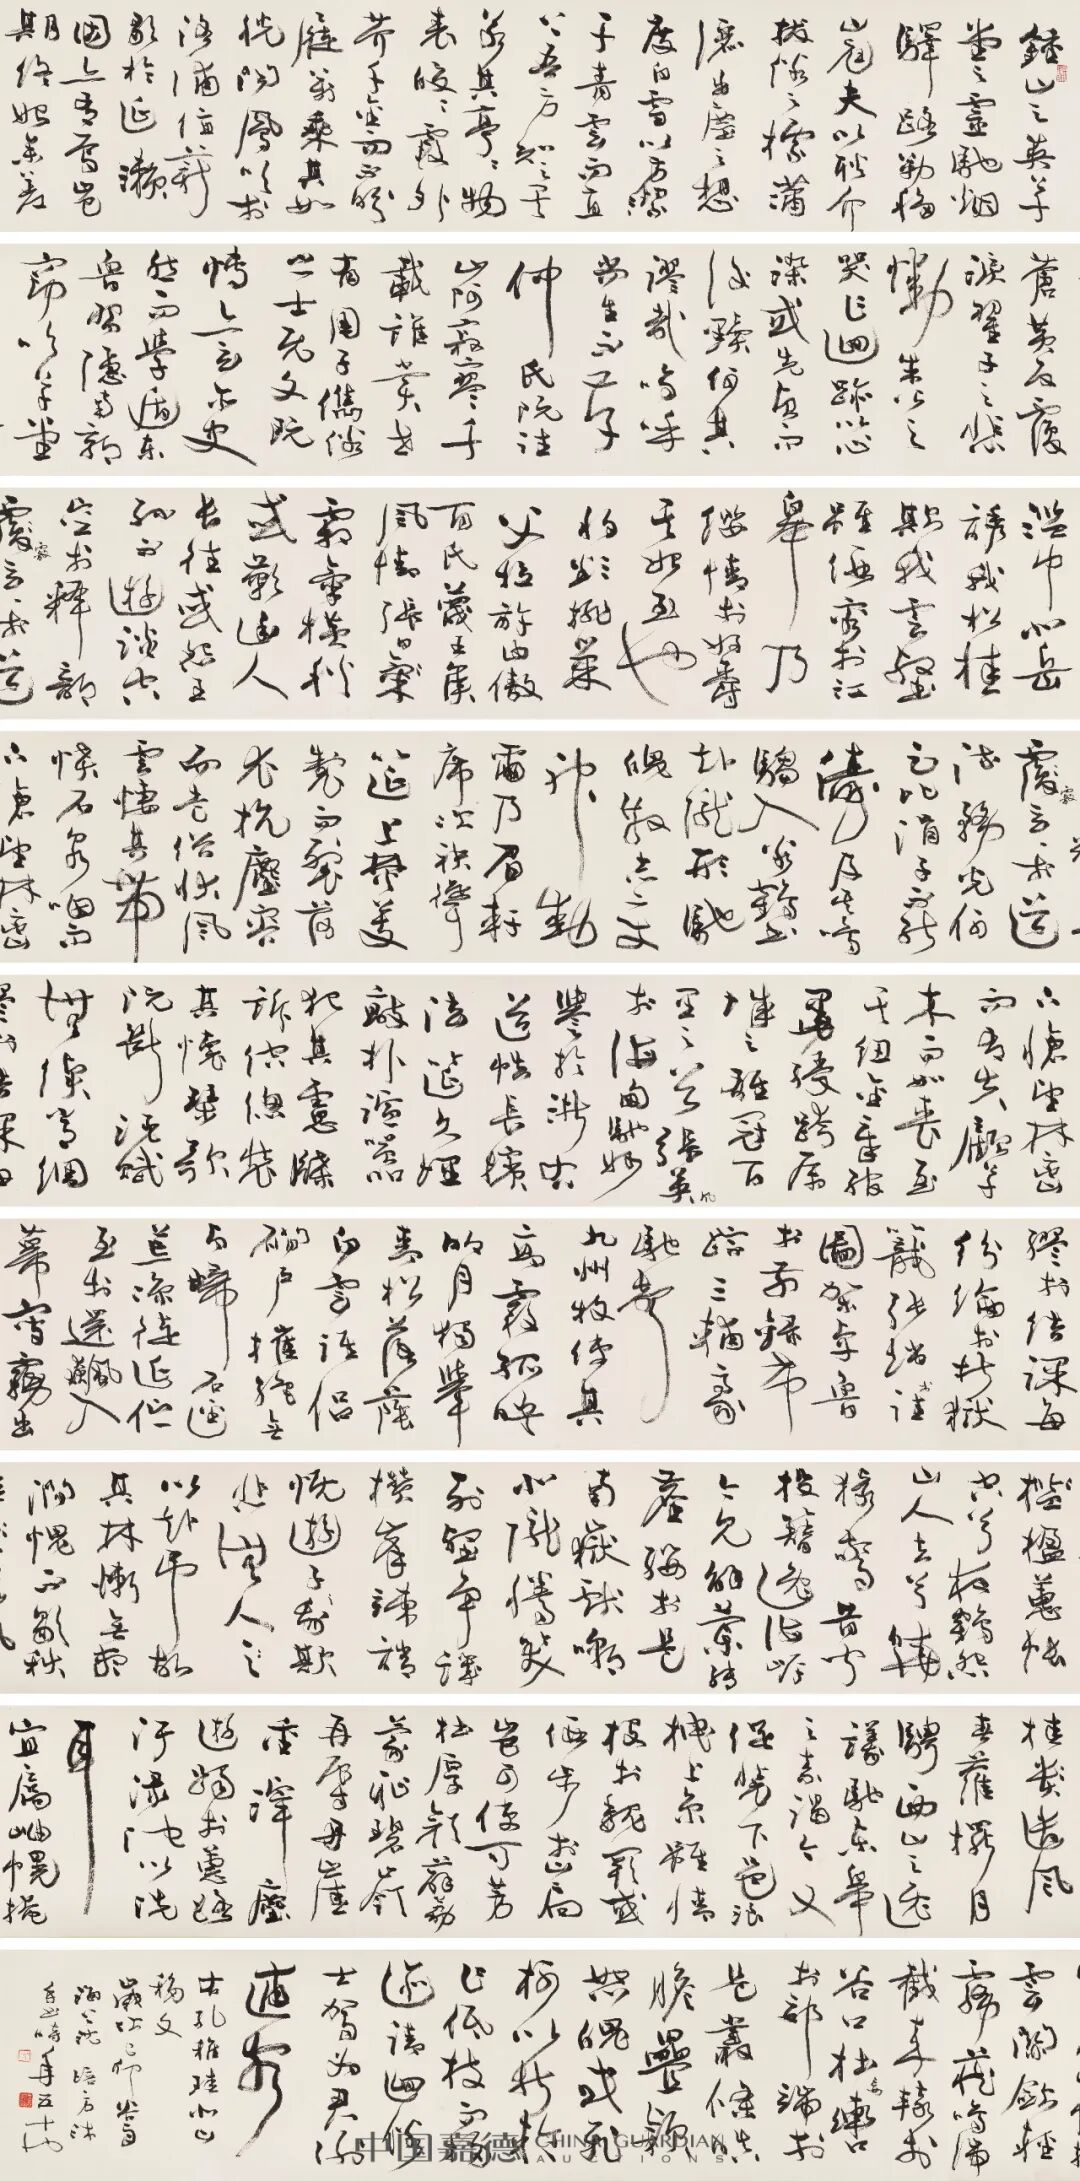 鍾山之英草
堂之靈馳烟
驛路勒移
山庭夫以耿介
拔俗之標瀟
灑出塵之想
度白雪以方潔
干青雲而直
上吾方知之矣
若其亭亭物
表皎皎霞外
芥千金而不眄
屣萬乘其如
脫聞鳳吹於
洛浦值薪
歌於延瀨
固亦有焉豈
期終始參差
蒼黃反覆
淚翟子之悲
慟朱公之
哭乍迴跡以心
染或先貞而
後黷何其
謬哉嗚呼
尚生不存
仲氏既往
山阿寂寥千
載誰賞世
有周子雋俗
之士既文既
博亦玄亦史
然而學遁東
魯習隱南郭
竊吹草堂
濫巾北岳
誘我松桂
欺我雲壑
雖假容於江
皋乃
纓情於好爵
其始至也
將欲排巢
父拉許由傲
百氏蔑王侯
風情張日
霜氣橫秋
或歎幽人
長往或怨王
孫不遊談空
空於釋部
覈玄玄於道
覈玄玄於道
流務光何
足比涓子不能
儔及其鳴
騶入谷鶴書
赴隴形馳
魄散志變
神動
爾乃眉軒
席次袂聳
筵上焚芰
製而裂荷
衣抗塵容
而走俗狀風
雲悽其帶
憤石泉咽而
下愴望林巒
下愴望林巒
而有失顧草
木而如喪至
其紐金章綰
墨綬跨屬
城之雄冠百
里之首張英風
於海甸馳妙
譽於浙右
道帙長擯
法筵久埋
敲扑諠囂
犯其慮牒
訴倥傯裝
其懷琴歌
既斷酒賦
無續常綢
繆於結課每
繆於結課每
紛綸於折獄
籠張趙於往
圖架卓魯
於前籙希
蹤三輔豪
馳聲
九州牧使其
高霞孤映
明月獨舉
青松落蔭
白雲誰侶
磵戶摧絕無
與歸石逕
荒涼徒延佇
至於還飆入
幕寫霧出
楹蕙帳
空兮夜鶴怨
山人去兮曉
猿驚昔聞
投簪逸海岸
今見解蘭縛
塵纓於是
南嶽獻嘲
北隴騰笑
列壑爭譏
攢峰竦誚
慨遊子我欺
悲無人
以赴弔故
其林慚無盡
澗愧不歇秋
桂遣風
春蘿擺月
騁西山之逸
議馳東皋
之素謁今又
促裝下邑浪
栧上京雖情
投於魏闕或
假步於山扃
豈可使芳
杜厚顏薜荔
蒙恥碧嶺
再辱丹崖
重滓塵
遊躅於蕙路
汙淥池以洗
耳
宜扃岫幌掩
雲關斂輕
霧藏鳴湍
截來轅於
谷口杜妄轡
於郊端於
是叢條瞋
膽疊穎
怒魄或飛
柯以折輪
乍低枝而掃
迹請迴俗
士駕為君謝
逋客
古孔稚珪北山
移文
中国嘉德 CHINA GUARDIAN AUCTIONS